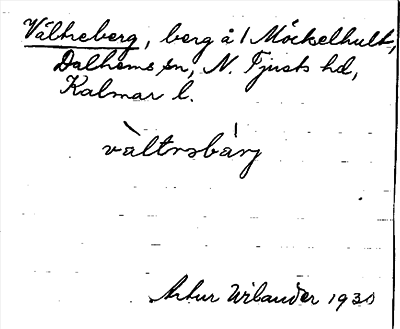 Vältreberg, berg å 1 Möckelhult,
Dalhems sn, N. Tjusts hd,
Kalmar l.
vàltrsbárj
Artur Wilander 1930